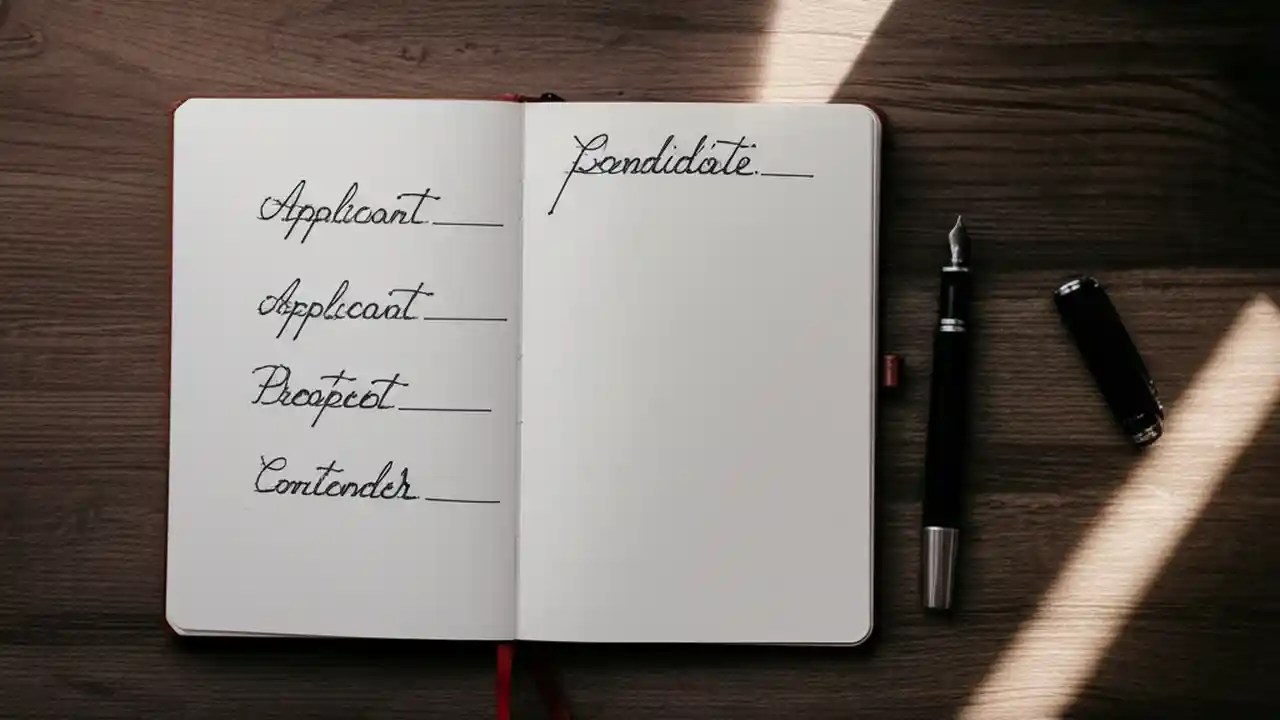 Applicant ____
Applicant ____
Prospect ____
Contender ____
Candidate. ____